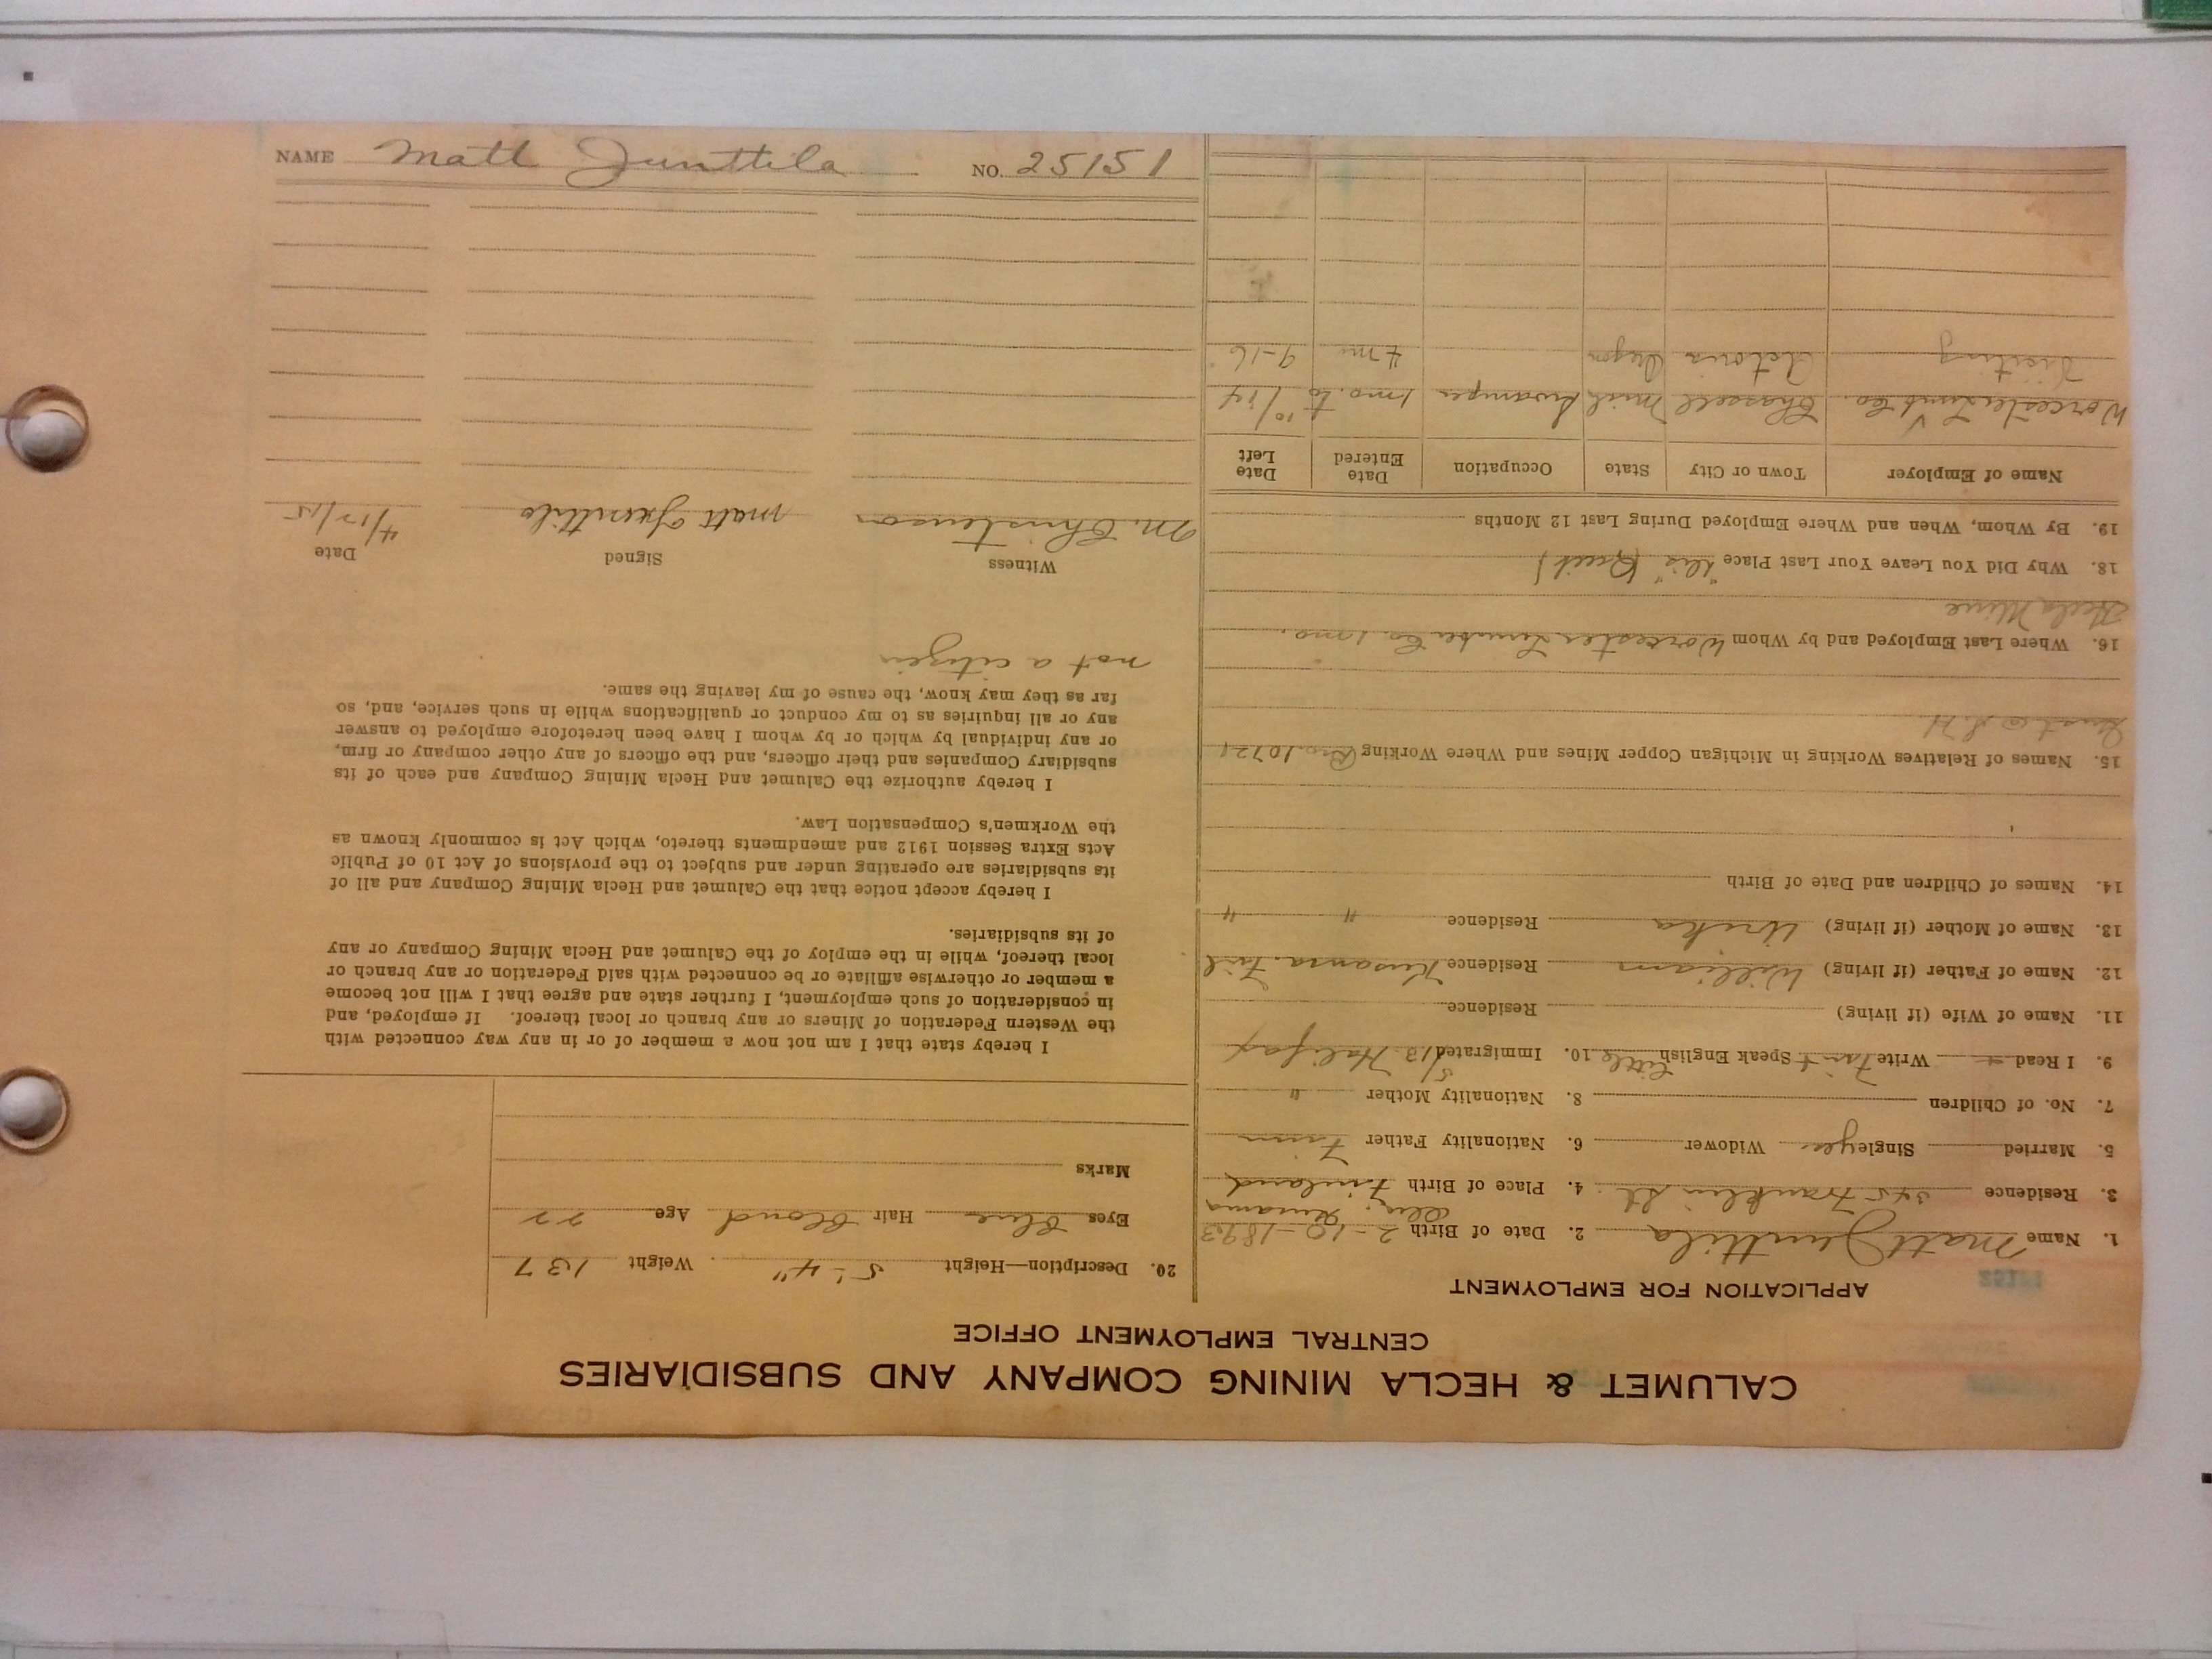 CALUMET & HECLA MINING COMPANY AND SUBSIDIARIES
CENTRAL EMPLOYMENT OFFICE
APPLICATION FOR EMPLOYMENT
1. Name Matt Junttila 2. Date of Birth 2-10-1893
3. Residence 345 Franklin St. 4. Place of Birth Finland
5. Married Single yes Widower 6. Nationality Father Finn
7. No. of Children 8. Nationality Mother "
9. I Read + Write Finn + Speak English little 10. Immigrated 5/13 Halifax
11. Name of Wife (if living) Residence
12. Name of Father (if living) William Residence
13. Name of Mother (if living) Residence " "
14. Names of Children and Date of Birth
15. Names of Relatives Working in Michigan Copper Mines and Where Working
16. Where Last Employed and by Whom Worcester Lumber Co. 1 mo.
Hecla Mine
18. Why Did You Leave Your Last Place
19. By Whom, When and Where Employed During Last 12 Months
Name of Employer Town or City State Occupation Date Entered Date Left
Worcester Lumb Co. Chassell Mich Swamper 1 mo. to 10/14
Visiting Astoria Oregon 4 m 9-16
20. Description—Height 5'-4" Weight 137
Eyes Blue Hair Blond Age 22
Marks
I hereby state that I am not now a member of or in any way connected with
the Western Federation of Miners or any branch or local thereof. If employed, and
in consideration of such employment, I further state and agree that I will not become
a member or otherwise affiliate or be connected with said Federation or any branch or
local thereof, while in the employ of the Calumet and Hecla Mining Company or any
of its subsidiaries.
I hereby accept notice that the Calumet and Hecla Mining Company and all of
its subsidiaries are operating under and subject to the provisions of Act 10 of Public
Acts Extra Session 1912 and amendments thereto, which Act is commonly known as
the Workmen's Compensation Law.
I hereby authorize the Calumet and Hecla Mining Company and each of its
subsidiary Companies and their officers, and the officers of any other company or firm,
or any individual by which or by whom I have been heretofore employed to answer
any or all inquiries as to my conduct or qualifications while in such service, and, so
far as they may know, the cause of my leaving the same.
not a citizen
Witness Signed Date
M. Christenson Matt Junttila 4/17/15
NAME Matt Junttila NO. 25151